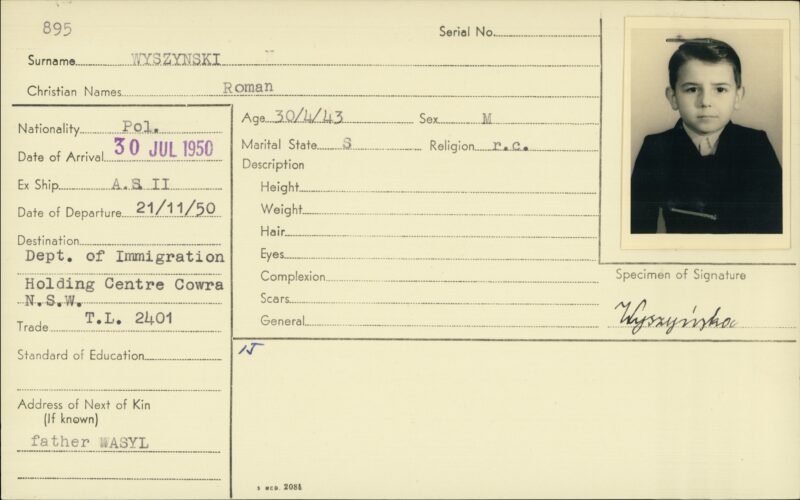 895
Serial No.
Surname WYSZYNSKI
Christian Names Roman
Nationality Pol.
Date of Arrival 30 JUL 1950
Ex Ship A.S II
Date of Departure 21/11/50
Destination
Dept. of Immigration
Holding Centre Cowra
N.S.W.
Trade T.L. 2401
Standard of Education
Address of Next of Kin
(If known)
father WASYL
Age 30/4/43 Sex M
Marital State S Religion r.c.
Description
Height
Weight
Hair
Eyes
Complexion
Scars
General
Specimen of Signature
Wyszyńska
15